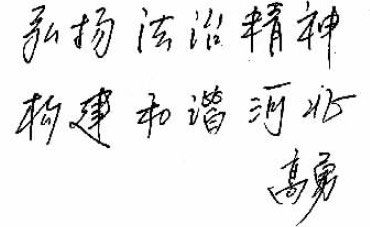 弘扬法治精神
构建和谐河北
高勇